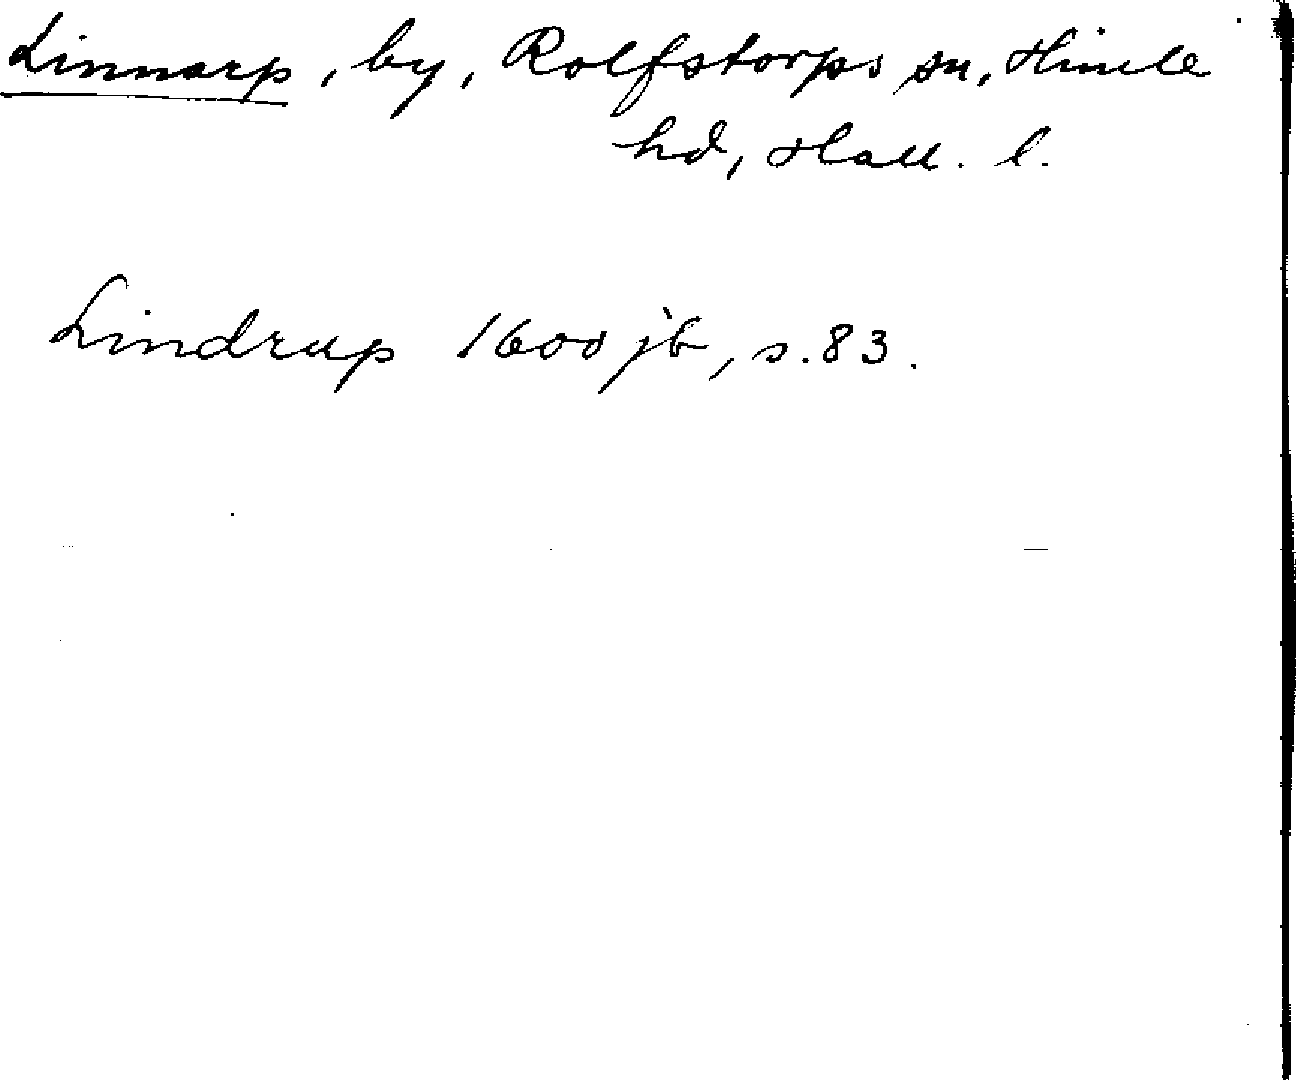 Linnarp, by, Rolfstorps sn, Himle
hd, Hall. l.
Lindrup 1600 jb, s. 83.